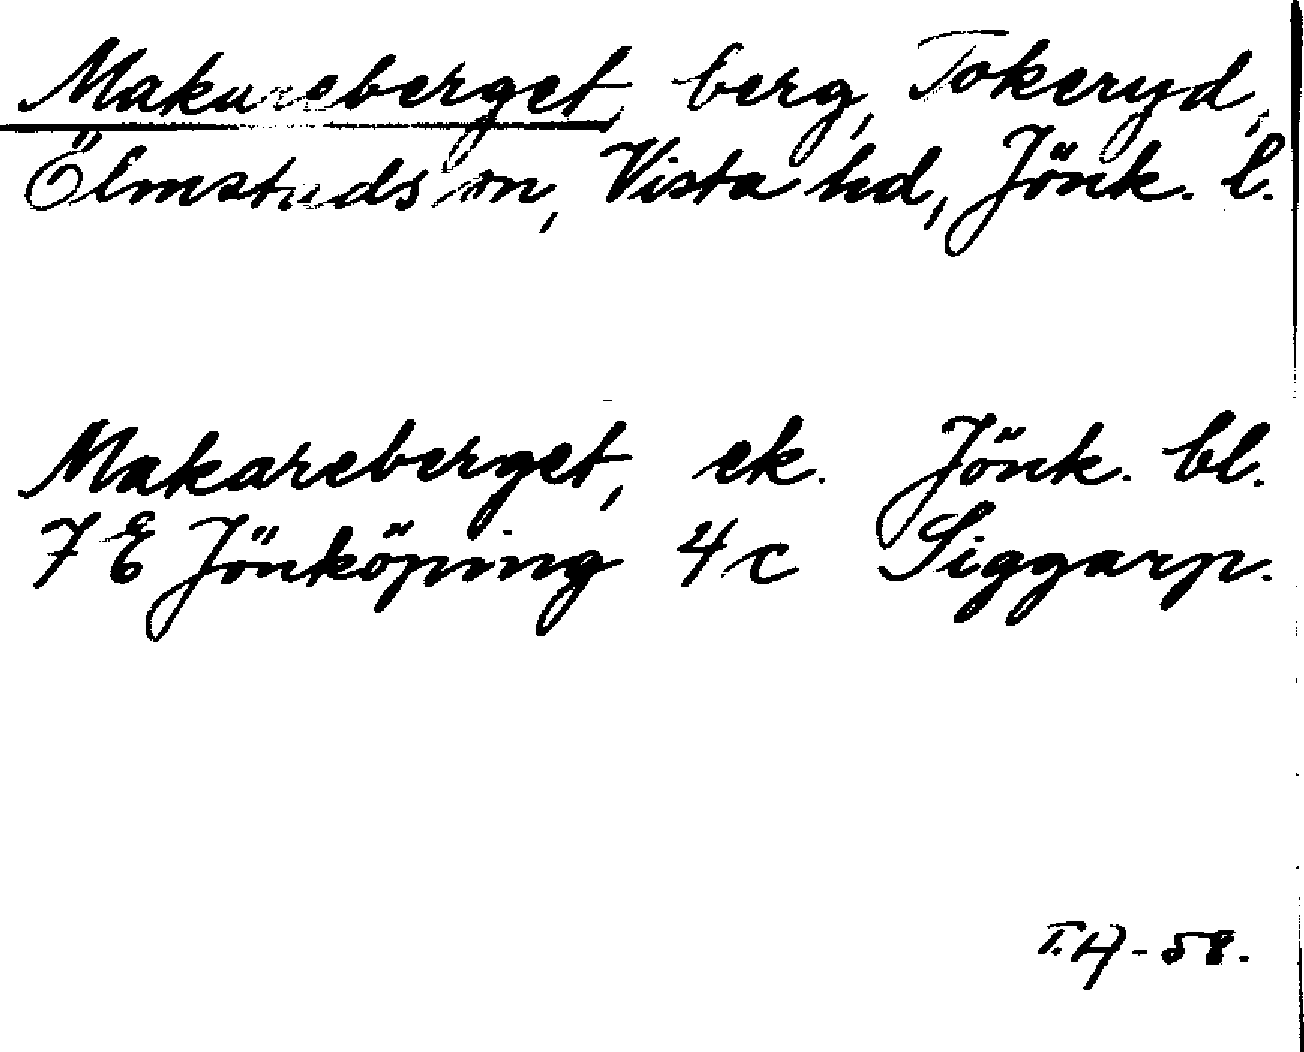 Makareberget, berg, Tokeryd,
Ölmstads sn, Vista hd, Jönk. l.
Makareberget, ek. Jönk. bl.
7 E Jönköping 4 c Siggarp.
T.H-58.